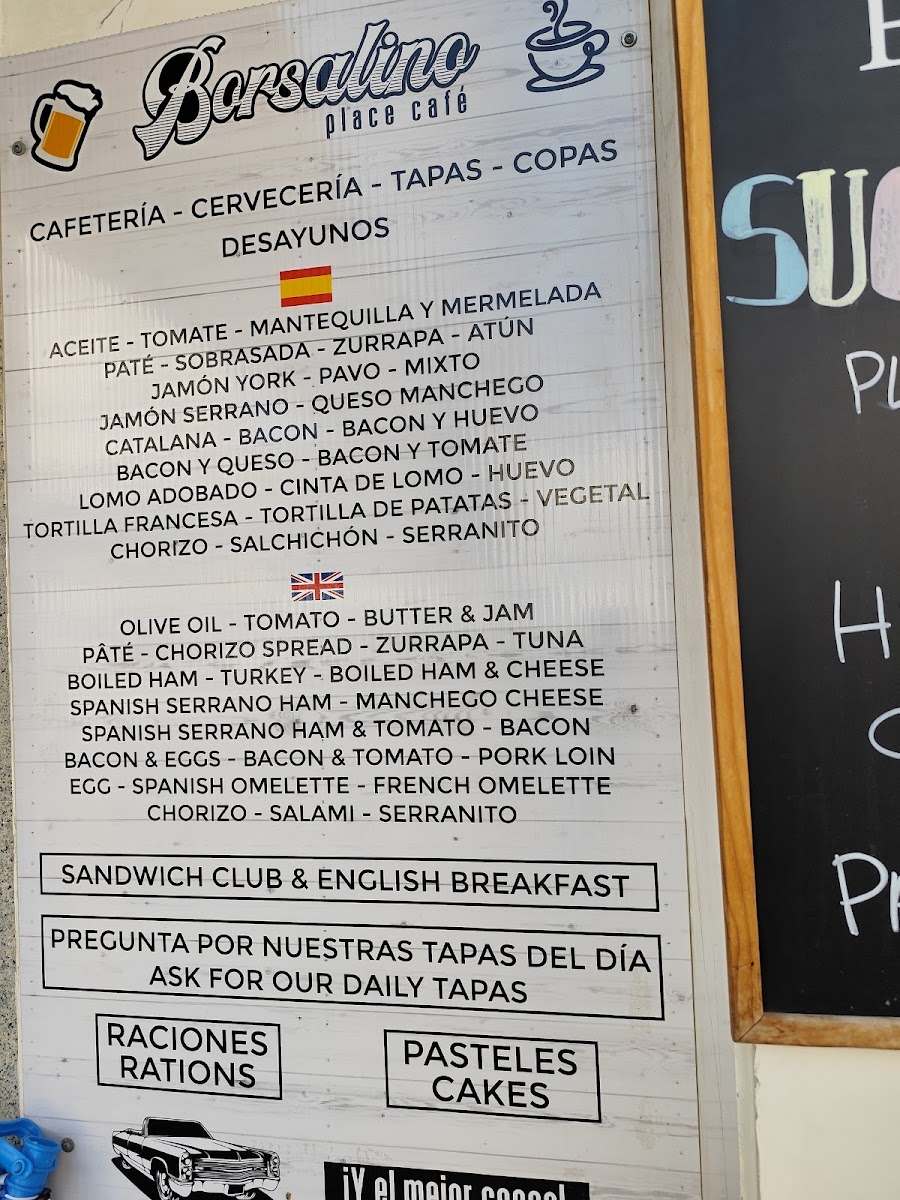 Borsalino
place café
CAFETERÍA - CERVECERÍA - TAPAS - COPAS
DESAYUNOS
ACEITE - TOMATE - MANTEQUILLA Y MERMELADA
PATÉ - SOBRASADA - ZURRAPA - ATÚN
JAMÓN YORK - PAVO - MIXTO
JAMÓN SERRANO - QUESO MANCHEGO
CATALANA - BACON - BACON Y HUEVO
BACON Y QUESO - BACON Y TOMATE
LOMO ADOBADO - CINTA DE LOMO - HUEVO
TORTILLA FRANCESA - TORTILLA DE PATATAS - VEGETAL
CHORIZO - SALCHICHÓN - SERRANITO
OLIVE OIL - TOMATO - BUTTER & JAM
PÂTÉ - CHORIZO SPREAD - ZURRAPA - TUNA
BOILED HAM - TURKEY - BOILED HAM & CHEESE
SPANISH SERRANO HAM - MANCHEGO CHEESE
SPANISH SERRANO HAM & TOMATO - BACON
BACON & EGGS - BACON & TOMATO - PORK LOIN
EGG - SPANISH OMELETTE - FRENCH OMELETTE
CHORIZO - SALAMI - SERRANITO
SANDWICH CLUB & ENGLISH BREAKFAST
PREGUNTA POR NUESTRAS TAPAS DEL DÍA
ASK FOR OUR DAILY TAPAS
RACIONES
RATIONS
PASTELES
CAKES
¡Y el mejor
SU
PL
H